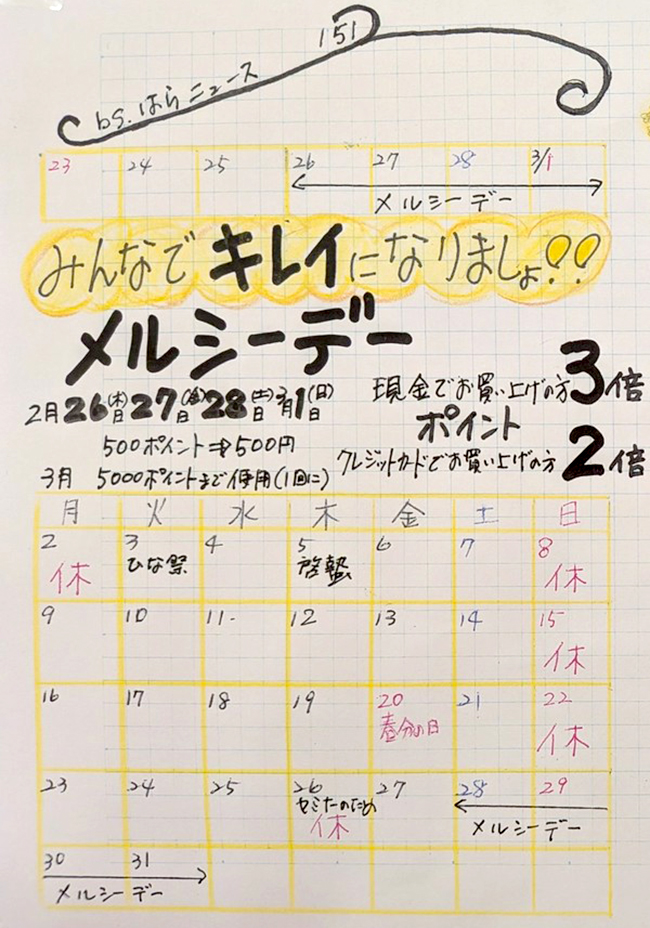 151
bs.はらニュース
23 24 25 26 27 28 3/1
メルシーデー
みんなでキレイになりましょ??
メルシーデー
2月26日(木)27日(金)28日(土)3月1日(日)
500ポイント⇒500円
3月 5000ポイントまで使用(1回に)
現金でお買い上げの方3倍
ポイント
クレジットカードでお買い上げの方2倍
月 火 水 木 金 土 日
2 3 4 5 6 7 8
休 ひな祭 啓蟄 休
9 10 11 12 13 14 15
休
16 17 18 19 20 21 22
春分の日 休
23 24 25 26 27 28 29
セミナーのため
休 メルシーデー
30 31
メルシーデー